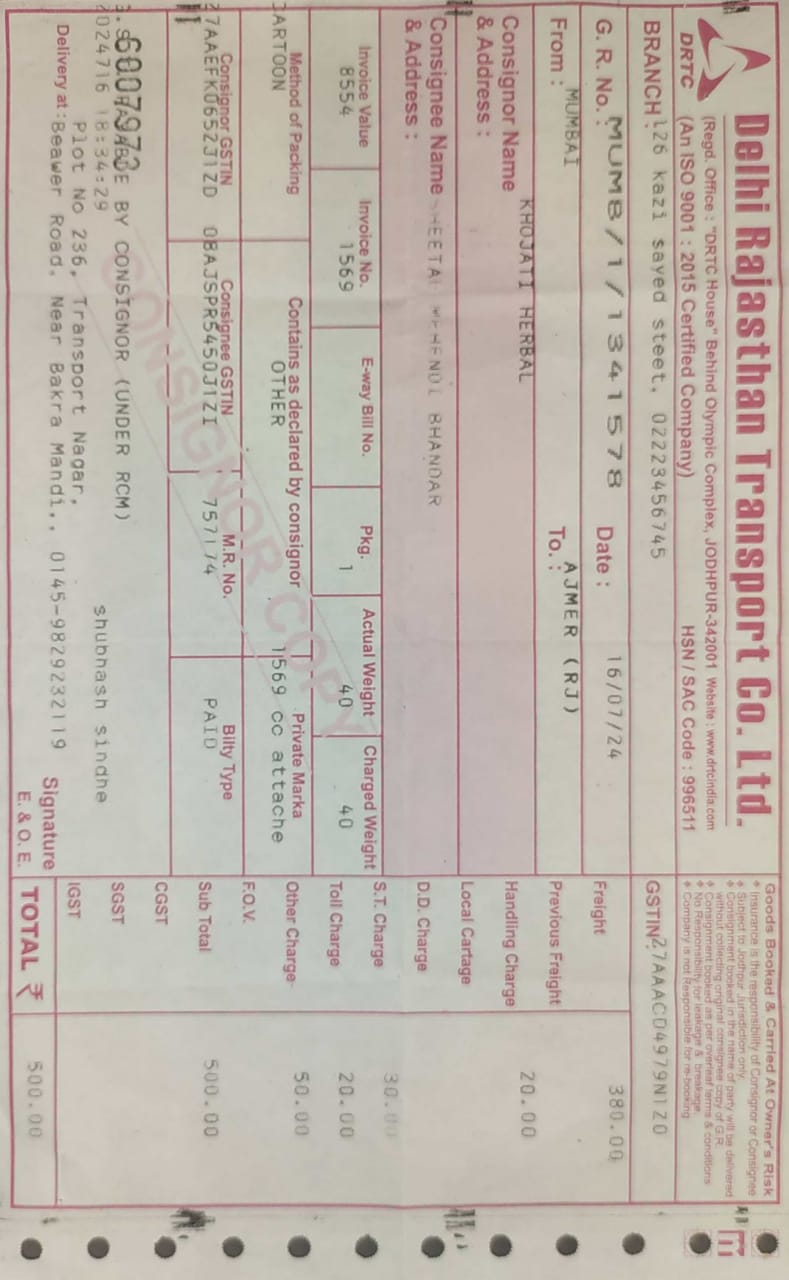 Delhi Rajasthan Transport Co. Ltd.
(Regd. Office : "DRTC House" Behind Olympic Complex, JODHPUR-342001 Website : www.drtcindia.com
DRTC (An ISO 9001 : 2015 Certified Company) HSN / SAC Code : 996511
Goods Booked & Carried At Owner's Risk
Insurance is the responsibility of Consignor or Consignee
Subject to Jodhpur Jurisdiction only.
Consignment booked in the name of party will be delivered
without collecting original consignee copy of G.R.
Consignment booked as per overleaf terms & conditions
No Responsibility for leakage & breakage.
Company is not Responsible for re-booking
BRANCH : 126 kazi sayed steet, 02223456745
GSTIN 27AAACD4979N1ZO
G. R. No. : MUMB/1/1341578 Date : 16/07/24
Freight 380.00
From : MUMBAI To. : AJMER (RJ)
Previous Freight
Consignor Name KHOJATI HERBAL
& Address :
Handling Charge 20.00
Local Cartage
Consignee Name HEETAL MEHENDI BHANDAR
& Address :
D.D. Charge
S.T. Charge 30.00
Invoice Value Invoice No. E-way Bill No. Pkg. Actual Weight Charged Weight
8554 1569 1 40 40
Toll Charge 20.00
Method of Packing Contains as declared by consignor Private Marka
CARTOON OTHER 1569 cc attache
Other Charge 50.00
F.O.V.
Consignor GSTIN Consignee GSTIN M.R. No. Bilty Type
27AAEFK0652J1ZD 08AJSPR5450J1ZI 757174 PAID
Sub Total 500.00
CONSIGNOR COPY
CGST
6007973
BY CONSIGNOR (UNDER RCM)
SGST
2024716 18:34:29 shubhash sindhe
IGST
Plot No 236, Transport Nagar,
Delivery at : Beawer Road, Near Bakra Mandi,, 0145-9829232119
Signature
E. & O. E.
TOTAL ₹ 500.00